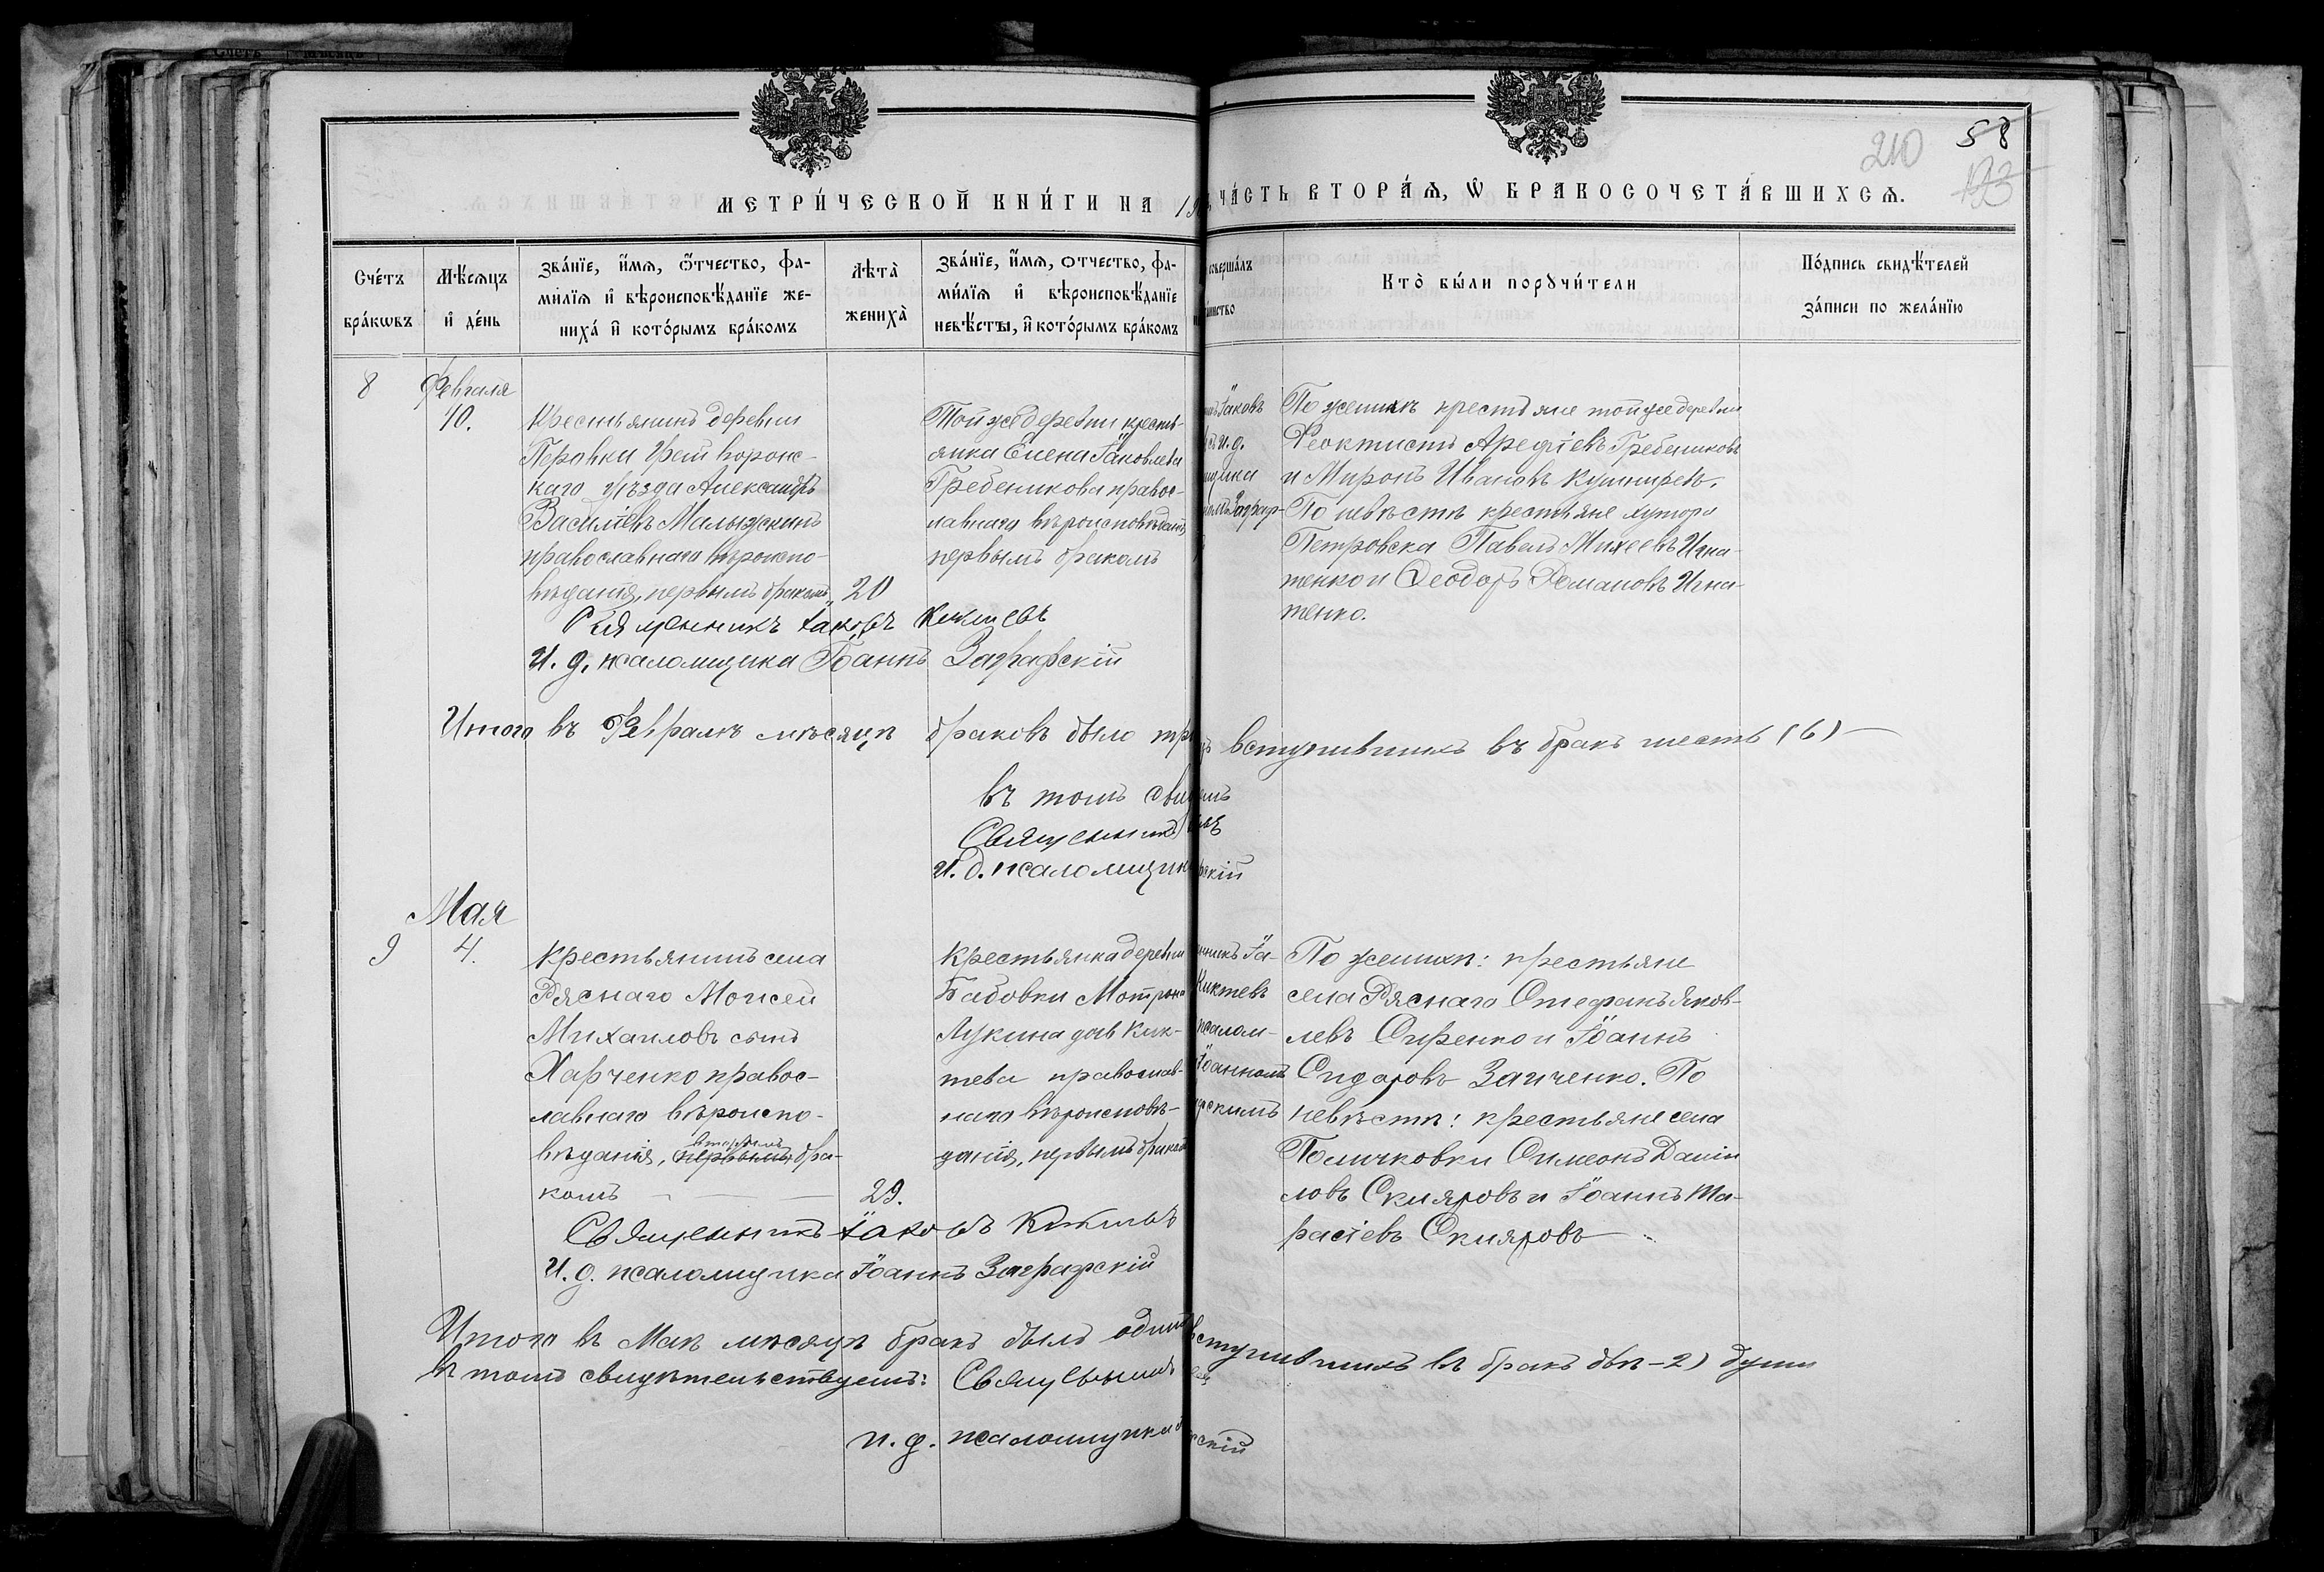 210 58
193
МЕТРИ́ЧЕСКОЙ КНИ́ГИ НА 19
ЧА́СТЬ ВТОРА́Ѧ, Ѡ҆ БРАКОСОЧЕТА́ВШИХСѦ.
Сче́тъ бра́кѡвъ
Мѣ́сѧцъ и҆ де́нь
Зва́нїе, и҆́мѧ, ѻ҆́тчество, фа-
ми́лїѧ и҆ вѣроисповѣ́данїе же-
ниха́ и҆ кото́рымъ бра́комъ
Лѣта̀ жениха̀
Зва́нїе, и҆́мѧ, отчество, фа-
ми́лїѧ и҆ вѣроисповѣ́данїе
невѣ́сты, и҆ кото́рымъ бра́комъ
соверша́лъ
Кто̀ бы́ли порꙋчи́тели
По́дпись свидѣ́телей
за́писи по жела́нїю
8 Февраля
10.
Крестьянинъ деревни
Перовки Грайворонс-
каго уѣзда Александръ
Василіевъ Малыжкинъ
православнаго вѣроиспо-
вѣданія, первымъ бракомъ 20
Той же деревни кресть-
янка Елена Іаковлева
Гребеникова правос-
лавнаго вѣроисповѣданія,
первымъ бракомъ
Іаковъ
и.д.
По женихѣ крестьяне той же деревни
Феоктистъ Арефіевъ Гребениковъ
и Миронъ Ивановъ Кушниревъ.
По невѣстѣ крестьяне хутора
Петровска Павелъ Михеевъ Игна-
тенко и Ѳеодоръ Романовъ Игна-
тенко.
Священникъ Іаковъ Киктевъ
И. д. псаломщика Іоаннъ Заграфскій
Итого въ Февралѣ мѣсяцѣ браковъ было
вступившихъ въ бракъ шесть (6)
въ томъ
Священникъ
И. д. псаломщик
скій
Мая
9 4.
Крестьянинъ села
Ряснаго Моисей
Михаиловъ сынъ
Харченко правос-
лавнаго вѣроиспо-
вѣданія, вторымъ первымъ бра-
комъ 29.
Крестьянка деревни
Бабовки Мотрона
Лукина дочь Кик-
тева православ-
наго вѣроисповѣ-
данія, первымъ бракомъ
Іа-
Киктевъ
псалом-
Іоанномъ
скимъ
По женихѣ: крестьяне
села Ряснаго Стефанъ Яков-
левъ Сиренко и Іоаннъ
Сидоровъ Заиченко. По
невѣстѣ: крестьяне села
Поличковки Симеонъ Даніи
ловъ Скляровъ и Іоаннъ Та-
расіевъ Скляровъ
Священникъ Іаковъ Киктевъ
И. д. псаломщика Іоаннъ Заграфскій
Итого въ Маѣ мѣсяцѣ бракъ былъ одинъ
вступившихъ въ бракъ двѣ - 2) души
въ томъ свидѣтельствуемъ: Священникъ
и. д. псаломщика
скій